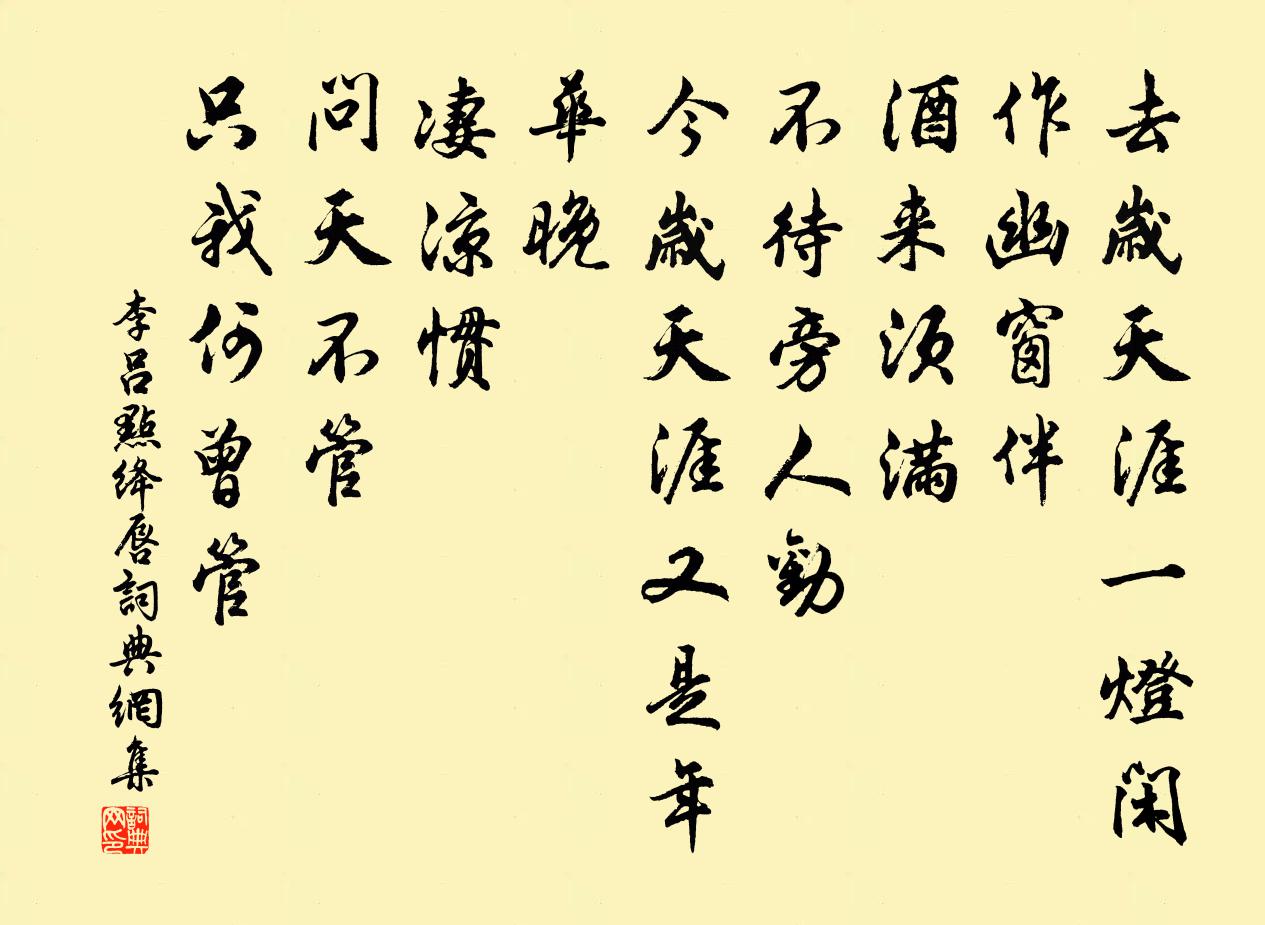 去歲天涯一燈閑
作幽窗伴
酒来須滿
不待旁人勸
今歲天涯又是年
華晚
凄涼慣
問天不管
只我何曾管
李呂點絳唇詞典網集
詞典网印